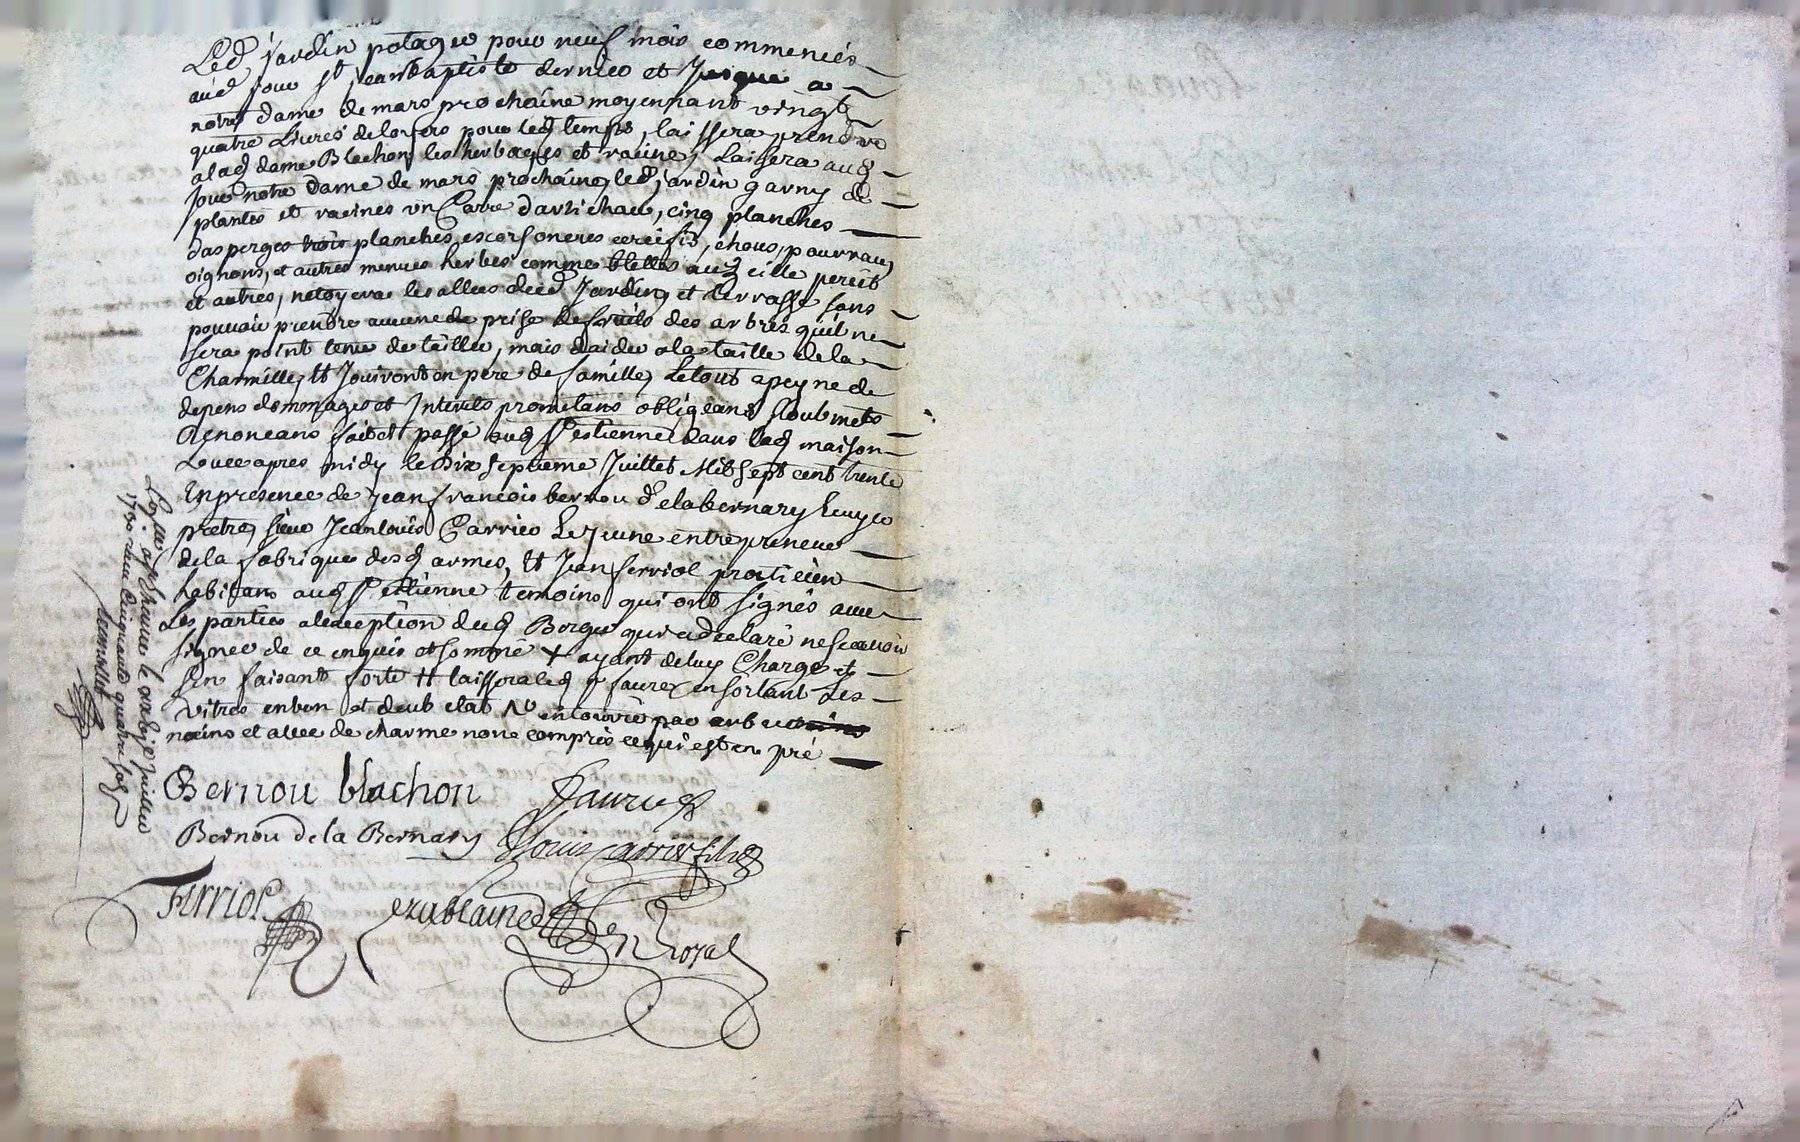 Led jardin potager pour neuf mois commencés
aud jour st jean baptiste dernier et jusque a
notre dame de mars prochaine moyennant vingt
quatre livres de loyers pour led temps, laissera prendre
a lad dame Blachon les herbages et racines, Laissera aud
jour notre dame de mars prochaine, led jardin garny de
plantes et racines un Carré dartichau, cinq planches
dasperges trois planches, escorsoneres cercifis, choux, pourraux
oignons, et autres menues herbes comme blettes ouzeille persit
et autres, netoyera les allees dud Jardin, et terrasse sans
pouvoir prendre aucune de prise de fruits des arbres quil ne
sera point tenu de tailler, mais daider a la taille de la
Charmille, Et Jouiront en pere de famille, Le tout a peyne de
depens dommages et Interets prometans obligeans soubmets
Renonceans fait et passé aud St estienne dans lad maison
Louee apres midy le Dix septieme Juillet Mil Sept cent trente
En presence de Jean francois bernou de la bernary Ecuyer
pretre, sieur Jean louis Carrier Le Jeune entrepreneur
de la fabrique desd armes, Et Jean ferriol praticien
habitans aud St estienne temoins qui ont signés avec
Les parties a lexception dud Borger qui a declaré ne scavoir
signer de ce enquis et sommé + ayant de luy Charge et
sen faisant forte ++ laissera led sr faurez en sortant Les
vitres en bon et deub etat entouré par arbres
nains et allee de charme non compris ce qui est en pré
Bernou blachon faurez
Bernou de la Bernary Jlouis Carrier fils
Ferriol Ezublaine
Royal